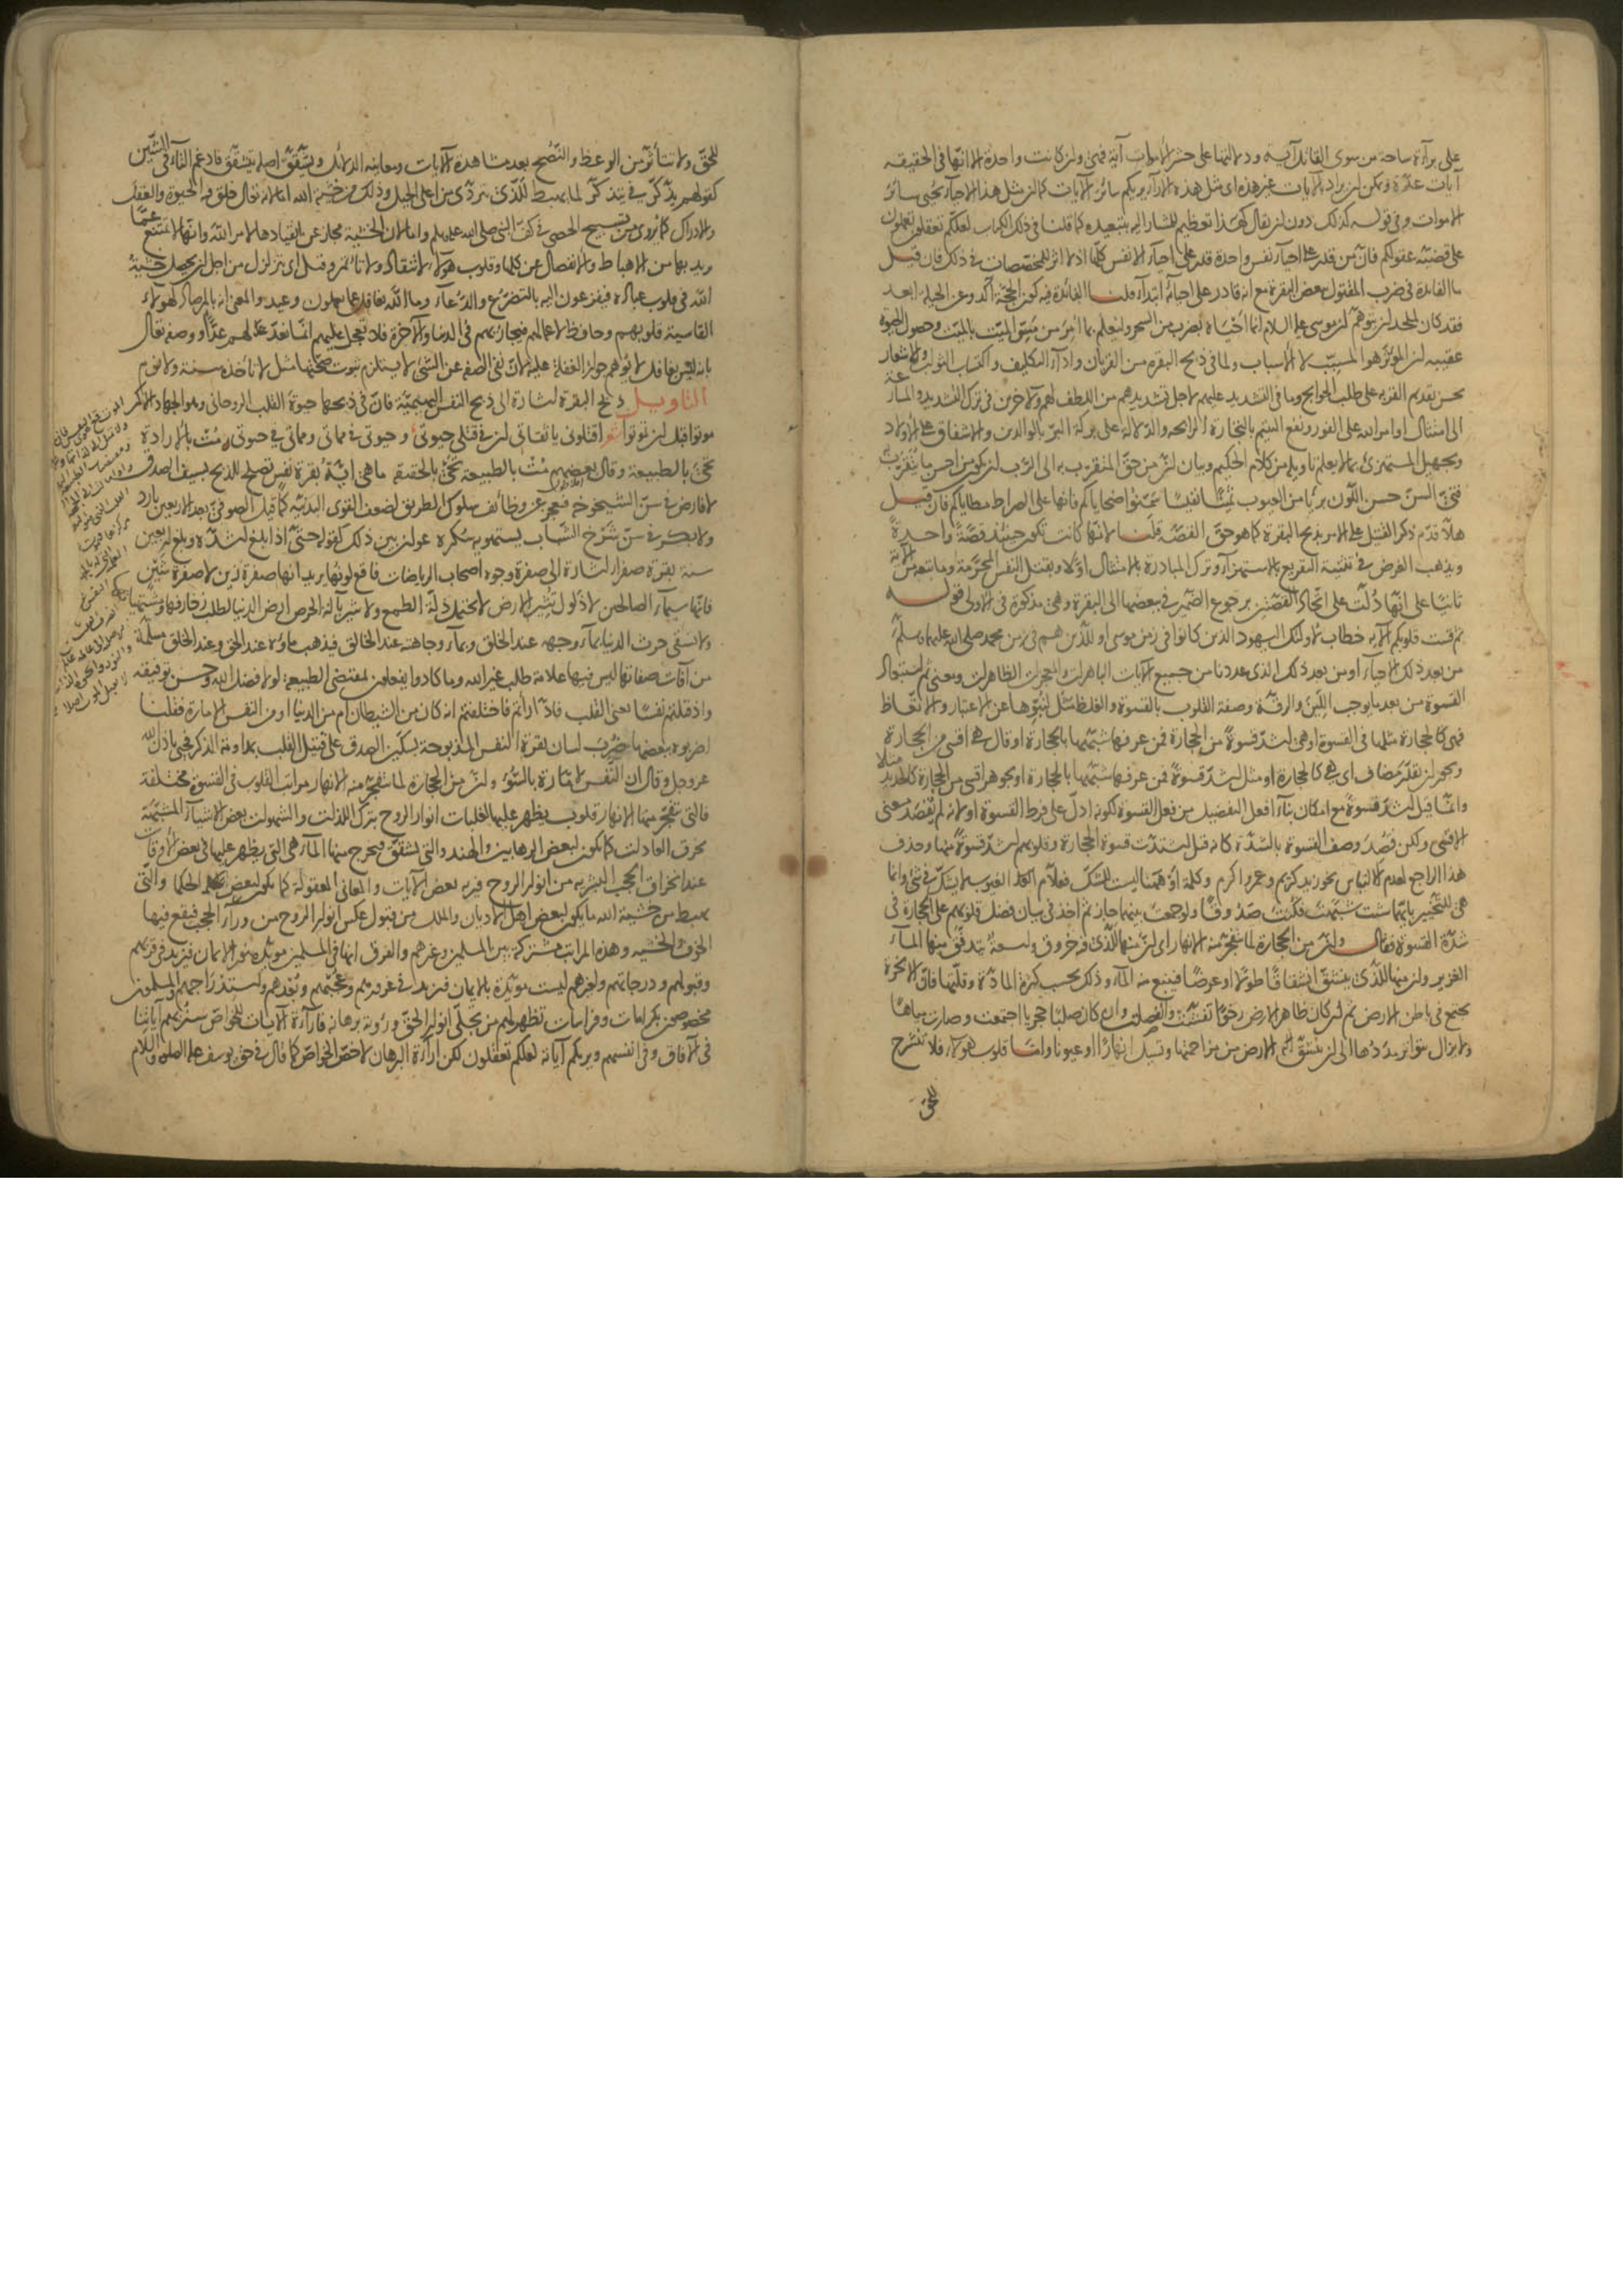 على براءة ساحة من سوى القاتل آية ودلالتها على حشر الأموات آية فهي وان كانت واحدة الا انها في الحقيقة
آيات عدة ويمكن ان يراد بالآيات غير هذه اى مثل هذه الاراءة يريكم سائر الآيات كما ان مثل هذا الاحياء يحيى سائر
الاموات وفي قوله كذلك دون ان يقال كهذا تعظيم للمشار اليه بتبعيده كما قلنا في ذلك الكتاب لعلكم تعقلون تعملون
على قضية عقولكم فان من قدر على احياء نفس واحدة قدر على احياء الانفس كلها اذ لا اثر للمخصصات في ذلك فان قيل
ما الفائدة في ضرب المقتول ببعض البقرة مع انه قادر على احيائه ابتداء قلنا الفائدة فيه كون الحجة آكد وعن الحيلة ابعد
فقد كان للملحد ان يتوهم ان موسى عليه السلام انما أحياه بضرب من السحر وليعلم بما أمر من مس الميت بالميت وحصول الحيوة
عقيبه ان المؤثر هو المسبب لا الأسباب ولما في ذبح البقرة من القربان واداء التكليف واكتساب الثواب والاشعار
بحسن تقديم القربة على طلب الحوائج وما في التشديد عليهم لاجل تشديدهم من اللطف لهم ولآخرين في ترك التشديد والمسارعة
الى امتثال اوامر الله على الفور ونفع اليتيم بالتجارة الرابحة والدلالة على بركة البر بالوالدين والاشفاق على الأولاد
وتجهيل المستهزئ بما لا يعلم تاويله من كلام الحكيم وبيان ان من حق المتقرب به الى الرب ان يكون من احسن ما يتقرب به
فتي السن حسن اللون بريا من العيوب ثمينا نفيسا سمنوا اضحاياكم فانها على الصراط مطاياكم فان قيل
هلا قدم ذكر القتيل على الامر بذبح البقرة كما هو حق القصة قلنا لانها كانت تكون حينئذ قصة واحدة
ويذهب الغرض في تثنية التقريع بالاستهزاء وترك المبادرة بالامتثال اولا وبقتل النفس المحرمة وما يتبعه من الآية
ثانيا على انها دلت على اتحاد القصتين برجوع الضمير في ببعضها الى البقرة وهي مذكورة في الاولى قوله
ثم قست قلوبكم الآية خطاب لأولئك اليهود الذين كانوا في زمن موسى او للذين هم في زمن محمد صلى الله عليهما وسلم
من بعد ذلك الاحياء او من بعد ذلك الذي عددنا من جميع الآيات الباهرات والمعجزات الظاهرات ومعنى ثم استبعاد
القسوة من بعد ما يوجب اللين والرقة وصفة القلوب بالقسوة والغلظ مثل لنبوها عن الاعتبار والاتعاظ
فهي كالحجارة مثلها في القسوة او هي اشد قسوة من الحجارة فمن عرفها شبهها بالحجارة او قال هي اقسى من الحجارة
ويجوز ان يقدر مضاف اى هي كالحجارة او مثل اشد قسوة فمن عرفها شبهها بالحجارة او بجوهر اقسى من الحجارة كالحديد مثلا
وانما قيل اشد قسوة مع امكان بناء افعل التفضيل من فعل القسوة لكونه ادل على فرط القسوة او لانه لم يقصد معنى
الاقسى ولكن قصد وصف القسوة بالشدة كانه قيل اشتدت قسوة الحجارة وقلوبهم اشد قسوة منها وحذف
هذا الراجع لعدم الالتباس نحو زيد كريم وعمرو اكرم وكلمة او ههنا ليست للشك فعلام الغيوب لا يشك في شئ وانما
هي للتخيير بايهما شئت شبهت فكنت صدوقا ولو جمعت بينهما جاز ثم اخذ في بيان فضل قلوبهم على الحجارة في
شدة القسوة فقال وان من الحجارة لما يتفجر منه الانهار اى ان منها للذي فيه خروق واسعة يتدفق منها الماء
الغزير وان منها للذي ينشق انشقاقا طولا او عرضا فينبع منه الماء وذلك بحسب كثرة المادة وقلتها فان الابخرة
تجتمع في باطن الارض ثم ان كان ظاهر الارض رخوا تفششت وانفصلت وان كان صلبا حجريا اجتمعت وصارت مياها
ولا يزال يتواتر مددها الى ان تنشق الارض من مزاحمتها وتسيل انهارا او عيونا واما قلوب هؤلاء فلا تنشرح
للحق
للحق ولا تتأثر من الوعظ والنصح بعد مشاهدة الآيات ومعاينة الدلائل ويشقق اصله يتشقق فادغم التاء في الشين
كقولهم يذكر في يتذكر لما يهبط للذى يتردى من اعلى الجبل وذلك من خشية الله اما لانه تعالى خلق فيه الحيوة والعقل
والادراك كما روى من تسبيح الحصى في كف النبي صلى الله عليه وسلم واما لان الخشية مجاز عن انقيادها لامر الله وانها لا تمتنع عما
يريد بها من الاهباط والانفصال عن كلها وقلوب هؤلاء لا تنقاد ولا تأتمر وقيل اى يتزلزل من اجل ان يحصل خشية
الله في قلوب عباده فيفزعون اليه بالتضرع والدعاء وما الله بغافل عما يعملون وعيد والمعنى انه بالمرصاد لهؤلاء
القاسية قلوبهم وحافظ لاعمالهم فيجازيهم في الدنيا والآخرة فلا تعجل عليهم انما نعد لهم عدا ووصفه تعالى
بانه ليس بغافل لا يوهم جواز الغفلة عليه لان نفى الصفة عن الشئ لا يستلزم ثبوت صحتها مثل لا تأخذه سنة ولا نوم
التأويل ذبح البقرة اشارة الى ذبح النفس البهيمية فان في ذبحها حيوة القلب الروحاني وهو الجهاد الاكبر
موتوا قبل ان تموتوا شعر اقتلونى يا ثقاتى ان في قتلى حيوتى وحيوتى في مماتى ومماتى في حيوتى مت بالارادة
تحيى بالطبيعة وقال بعضهم مت بالطبيعة تحيى بالحقيقة ما هي انها بقرة نفس تصلح للذبح بسيف الصدق
لا فارض في سن الشيخوخة فيعجز عن وظائف سلوك الطريق لضعف القوى البدنية كما قيل الصوفي بعد الاربعين بارد
ولا بكر في سن شرخ الشباب يستهويه سكره عوان بين ذلك كقوله حتى اذا بلغ اشده وبلغ اربعين
سنة بقرة صفراء اشارة الى صفرة وجوه اصحاب الرياضات فاقع لونها يريد انها صفرة زين لا صفرة شين
فانها سيماء الصالحين لا ذلول تثير الارض لا تحتمل ذلة الطمع ولا تثير بآلة الحرص ارض الدنيا لطلب زخارفها ومشتهياتها
ولا تسقى حرث الدنيا بماء وجهه عند الخلق وبماء وجاهته عند الخالق فيذهب ماؤه عند الحق وعند الخلق مسلمة
من آفات صفاتها ليس فيها علامة طلب غير الله وما كادوا يفعلون بمقتضى الطبيعة لولا فضل الله وحسن توفيقه
واذ قتلتم نفسا يعنى القلب فادارأتم فاختلفتم انه كان من الشيطان ام من الدنيا او من النفس الامارة فقلنا
اضربوه ببعضها ضرب لسان بقرة النفس المذبوحة بسكين الصدق على قتيل القلب بمداومة الذكر فحيى باذن الله
عز وجل وقال ان النفس لامارة بالسوء وان من الحجارة لما يتفجر منه الانهار مراتب القلوب في القسوة مختلفة
فالتي يتفجر منها الانهار قلوب يظهر عليها لغلبات انوار الروح بترك اللذات والشهوات بعض الاشياء المشبهة
بخرق العادات كما يكون لبعض الرهابين والهنود والتي تشقق فيخرج منها الماء هي التي يظهر عليها في بعض الاوقات
عند انخراق الحجب البشرية من انوار الروح فيريه بعض الآيات والمعاني المعقولة كما يكون لبعض الحكماء والتي
يهبط من خشية الله ما يكون لبعض اهل الاديان والملل من قبول عكس انوار الروح من وراء الحجب فيقع فيها
الخوف والخشية وهذه المراتب مشتركة بين المسلمين وغيرهم والفرق انها في المسلمين مؤيدة بنور الايمان فيزيد في قربهم
وقبولهم ودرجاتهم ولغيرهم ليست مؤيدة بالايمان فيزيد في غرورهم وعجبهم وبعدهم واستدراجهم والمسلمون
مخصوصون بكرامات وفراسات تظهر لهم من تجلى انوار الحق ورؤية برهانه فاراءة الآيات للخواص سنريهم آياتنا
في الآفاق وفي انفسهم ويريكم آياته لعلكم تعقلون لكن اراءة البرهان لاخص الخواص كما قال في حق يوسف عليه الصلوة والسلام